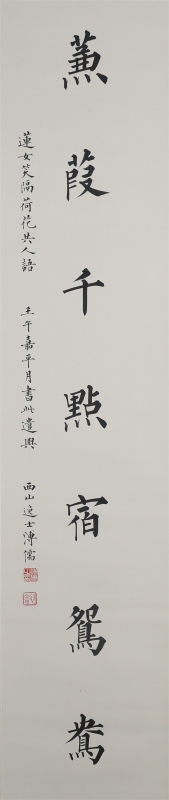 蒹葭千點宿鴛鴦
蓮女笑隔荷花共人語
壬午嘉平月書此遣興
西山逸士溥儒